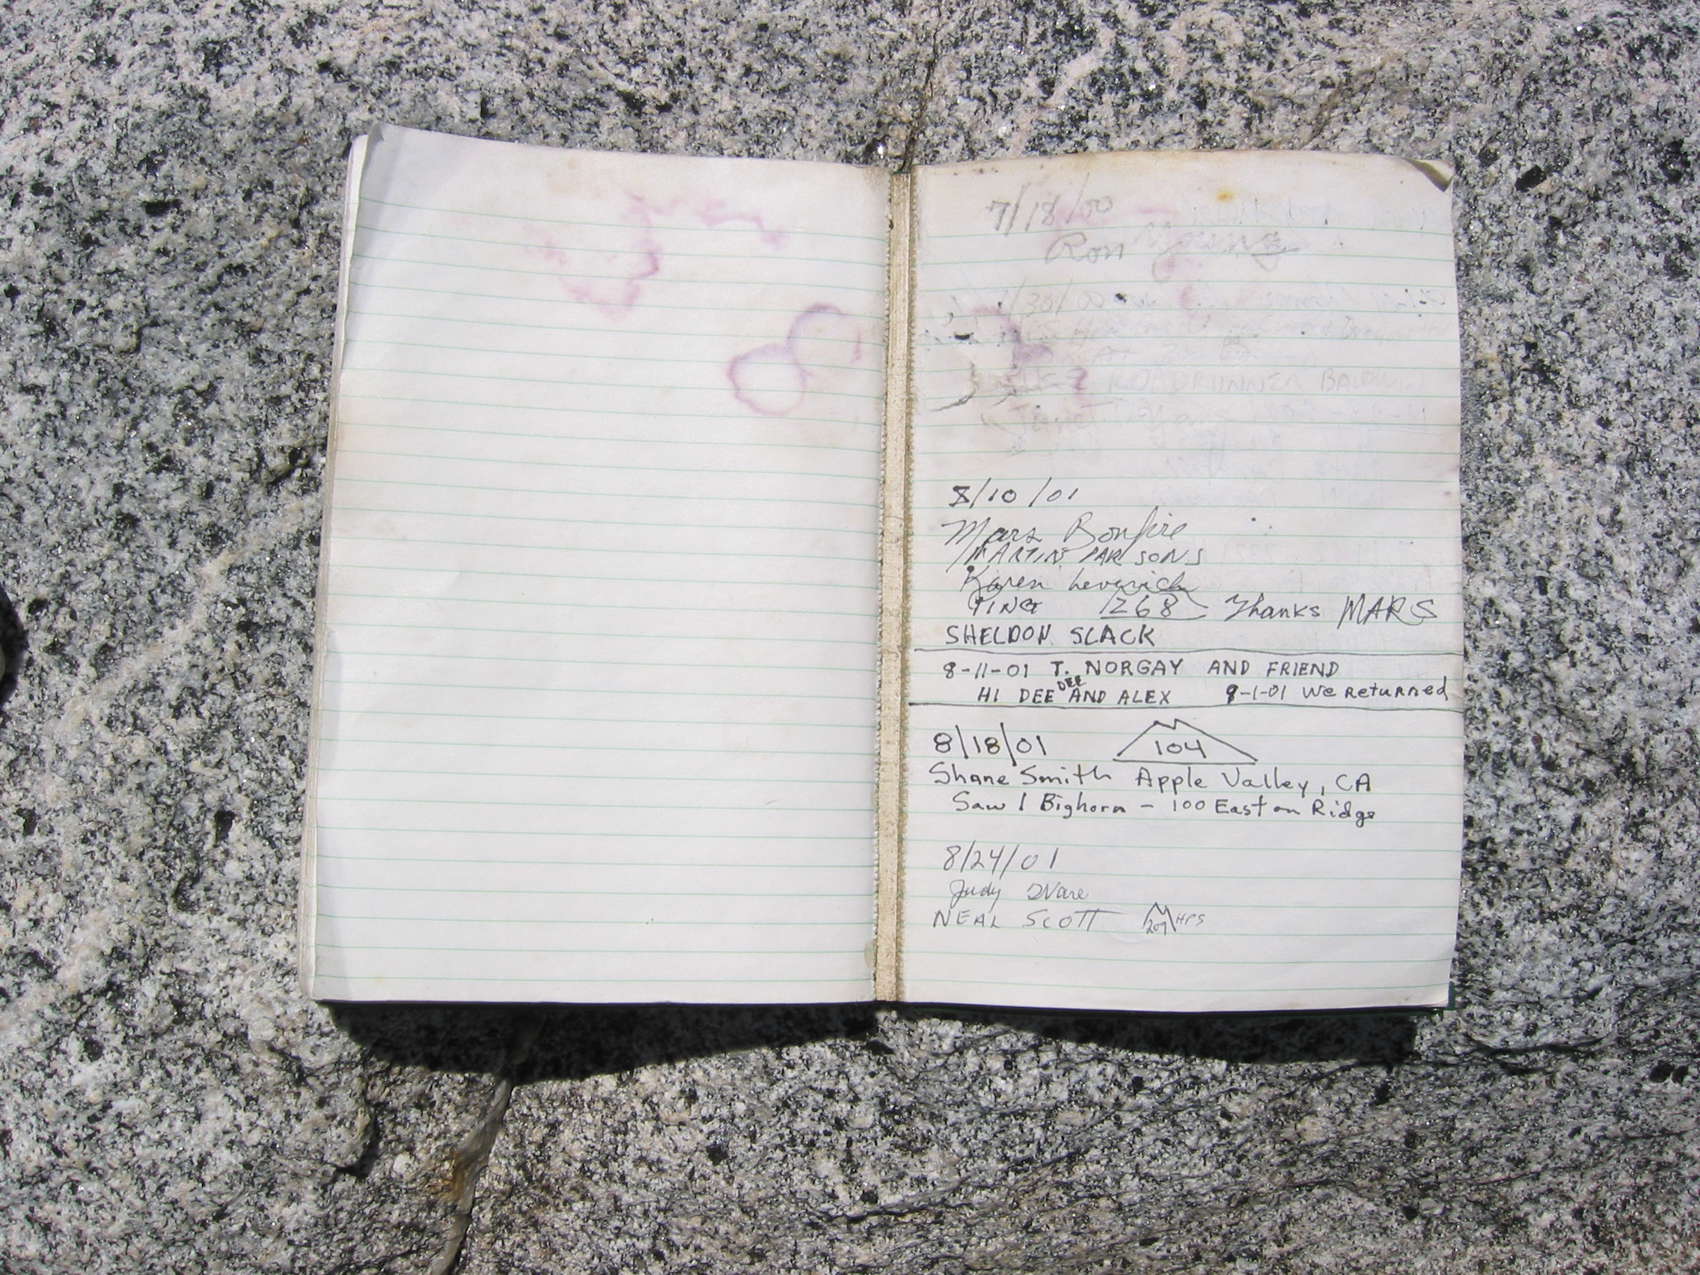 7/18/00
Ron Young
7/30/00
ROADRUNNER
Janet
8/10/01
Mars Bonfire
MARTIN PARSONS
Karen Leverich
268 Thanks MARS
SHELDON SLACK
8-11-01 T. NORGAY AND FRIEND
HI DEE DEE AND ALEX 9-1-01 We Returned
8/18/01 104
Shane Smith Apple Valley, CA
Saw 1 Bighorn - 100 East on Ridge
8/24/01
Judy Ware
NEAL SCOTT HPS